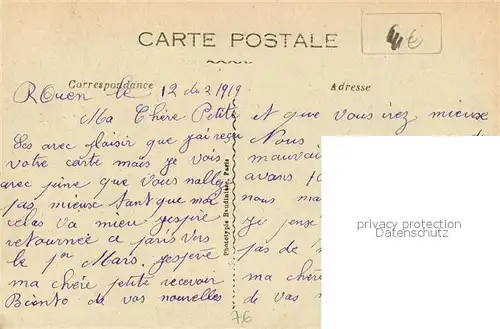 4€
CARTE POSTALE
Correspondance
Adresse
Rouen le 12 de 2 1919
Ma Chère Petite
Ses avec plaisir que j'ai reçu
votre carte mais je vois
avec pine que vous nallez
pas mieuse tant que moi
celas va mieu jespre
retournée a paris vers
le 1er Mars. jespère
ma chére petite recevoir
Biento de vos nouvelles
et que vous irez mieux
Nous
mauvai
avons
nous ma
pas de
ma chère
de vos
Phototypie Baudinière, Paris
privacy protection
Datenschutz
76